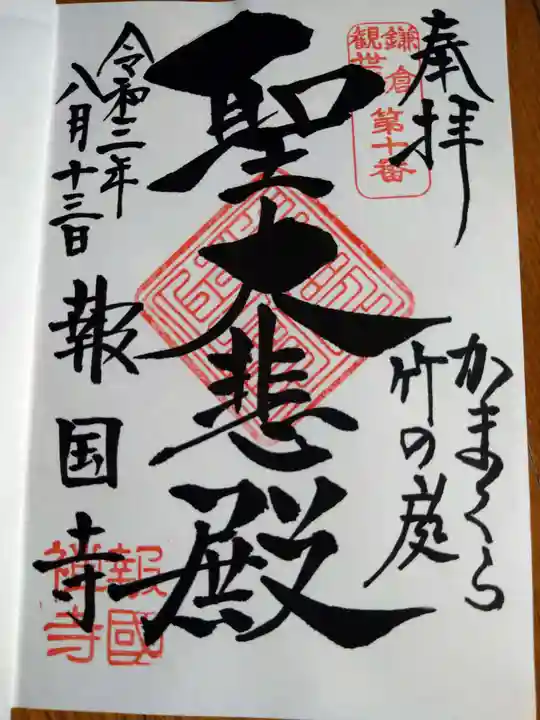 奉拝
鎌倉
観世音
第十番
かまくら
竹の庭
聖大悲殿
令和三年
八月十三日
報国寺
報國
禅寺